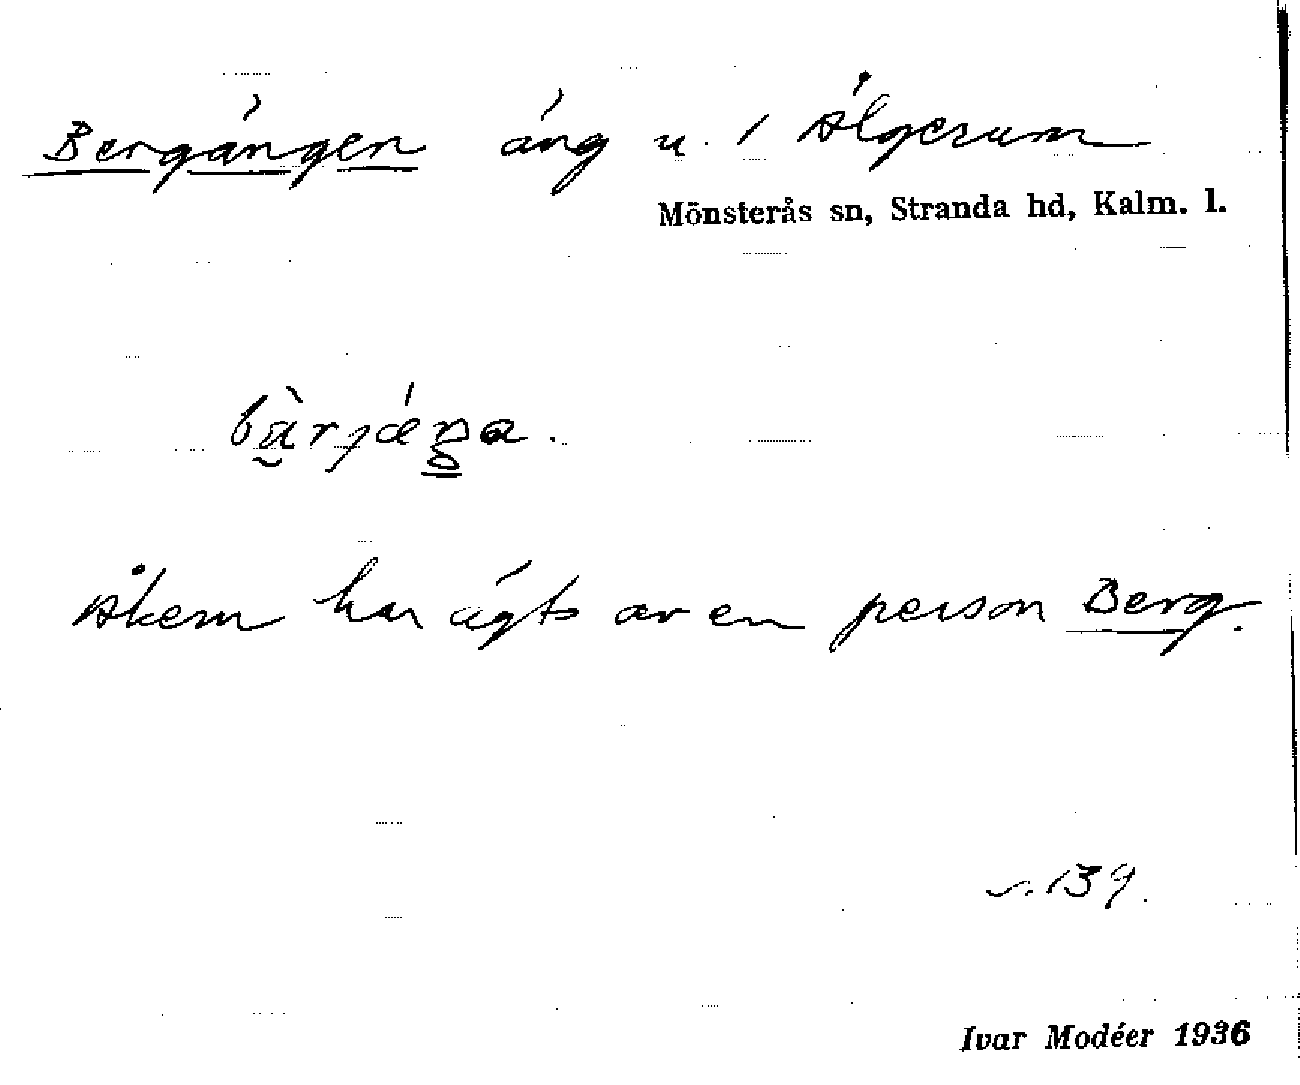 Bergängen äng u. 1 Ålgerum
Mönsterås sn, Stranda hd, Kalm. l.
Åkern har ägts av en person Berg.
s. 139.
Ivar Modéer 1936